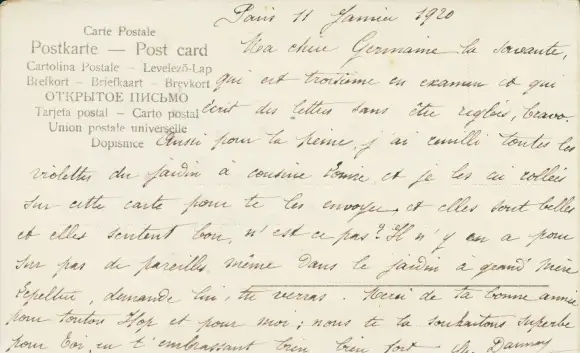 Paris 11 Janvier 1920
Carte Postale
Postkarte — Post card
Cartolina Postale — Levelező-Lap
Brefkort — Briefkaart — Brevkort
ОТКРЫТОЕ ПИСЬМО
Tarjeta postal — Carto postal
Union postale universelle
Dopisnice
Ma chère Germaine la savante,
qui est troisième en examen et qui
écrit des lettres sans être réglées, bravo.
Aussi pour la peine, j'ai cueilli toutes les
violettes du jardin à cousine Yonne et je les ai collées
sur cette carte pour te les envoyer, et elles sont belles
et elles sentent bon, n'est ce pas? Il n'y en a pour
sur pas de pareilles même dans le jardin à grand' mère
demande lui, tu verras. Merci de ta bonne année
pour tonton Hop et pour moi; nous te la souhaitons superbe
pour toi, en t'embrassant bien bien fort